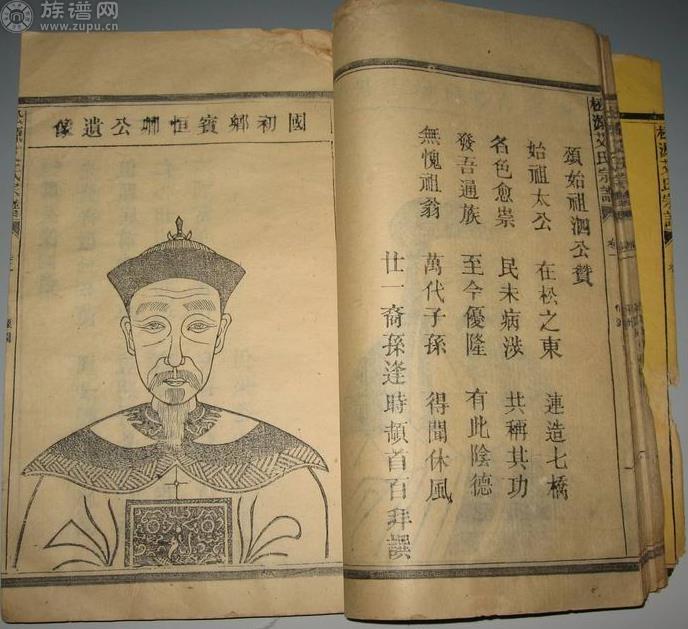 族谱网
www.zupu.cn
頌始祖泗公贊
始祖太公 在松之東 連造七橋
名色愈崇 民未病涉 共稱其功
發吾通族 至今優隆 有此陰德
無愧祖翁 萬代子孫 得聞休風
廿一裔孫逢時頓首百拜譔
國初鄉賓恒公遺像
松源氏宗譜
卷一